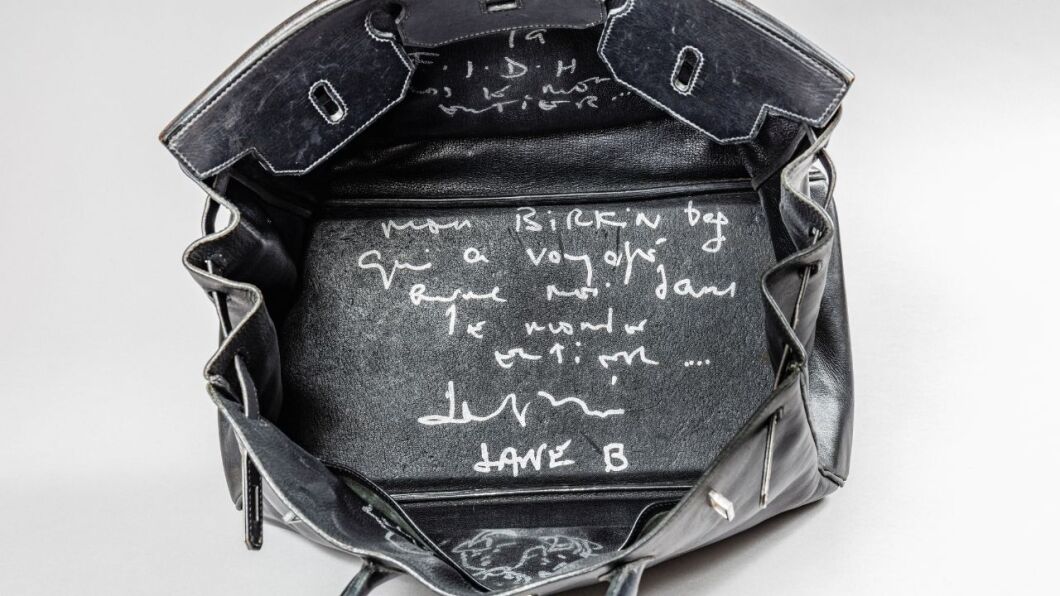 F.I.D.H
ENTIER...
mon BiRKiN bag
qui a voyagé
avec moi dans
le monde
entier ....
JANE B